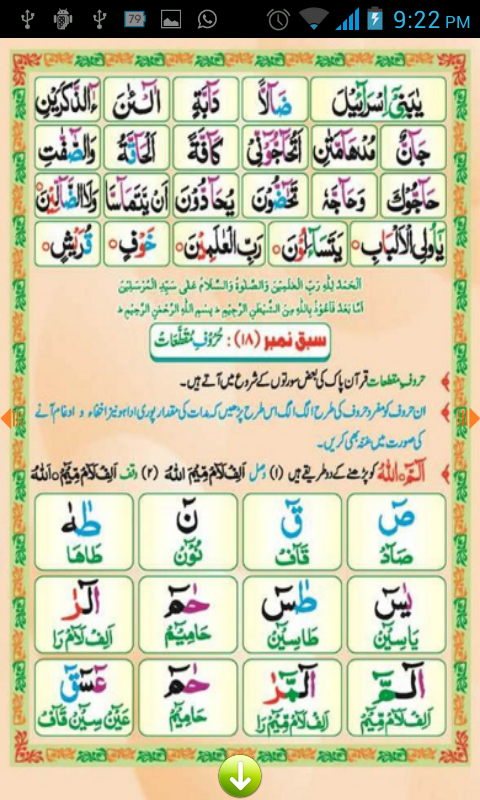 79 9:22 PM
يٰبَنِيْۤ اِسْرَآءِيْلَ ضَآلًّا دَآبَّةٍ آلْـٰٔنَ ءٰٓالذَّكَرَيْنِ
جَآنٌّ مُدْهَآمَّتٰنِ اَتُحَآجُّوْٓنِّيْ كَآفَّةً اَلْحَآقَّةُ وَالصّٰٓفّٰتِ
حَآجُّوْكَ وَحَآجَّهٗ تَحٰٓضُّوْنَ يُحَآدُّوْنَ اَنْ يَّتَمَآسَّا وَلَا الضَّآلِّيْنَ
يٰۤاُولِي الْاَلْبَابِ يَتَسَآءَلُوْنَ رَبِّ الْعٰلَمِيْنَ خَوْفٍ قُرَيْشٍ
اَلْحَمْدُ لِلّٰهِ رَبِّ الْعٰلَمِيْنَ وَالصَّلٰوةُ وَالسَّلَامُ عَلٰى سَيِّدِ الْمُرْسَلِيْنَ
اَمَّا بَعْدُ فَاَعُوْذُ بِاللّٰهِ مِنَ الشَّيْطٰنِ الرَّجِيْمِ ؕ بِسْمِ اللّٰهِ الرَّحْمٰنِ الرَّحِيْمِ ؕ
سبق نمبر (۱۸) : حُرُوْفِ مُقَطَّعَات
حروفِ مقطعات قرآن پاک کی بعض سورتوں کے شروع میں آتے ہیں۔
ان حروف کو مفرد حروف کی طرح الگ الگ اس طرح پڑھیں کہ مدات کی مقدار پوری ادا ہو نیز اخفاء و ادغام آنے
کی صورت میں غنہ بھی کریں۔
الٓمّٓ ۚ اللّٰهُ کو پڑھنے کے دو طریقے ہیں (۱) وصل اَلِفْ لَآم مِّيْمَ اللّٰهُ (۲) وقف اَلِفْ لَآم مِّيْٓمْ ۚ اَللّٰهُ
صٓ قٓ نٓ طٰهٰ
صَآدْ قَآفْ نُوْٓنْ طَاهَا
يٰسٓ طٰسٓ حٰمٓ الٓرٰ
يَاسِيْٓنْ طَاسِيْٓنْ حَامِيْٓمْ اَلِفْ لَآمْ رَا
الٓمّٓ الٓمّٓرٰ حٰمٓ عٓسٓقٓ
اَلِفْ لَآم مِّيْٓمْ اَلِفْ لَآم مِّيْٓمْ رَا حَامِيْٓمْ عَيْٓنْ سِيْٓنْ قَآفْ